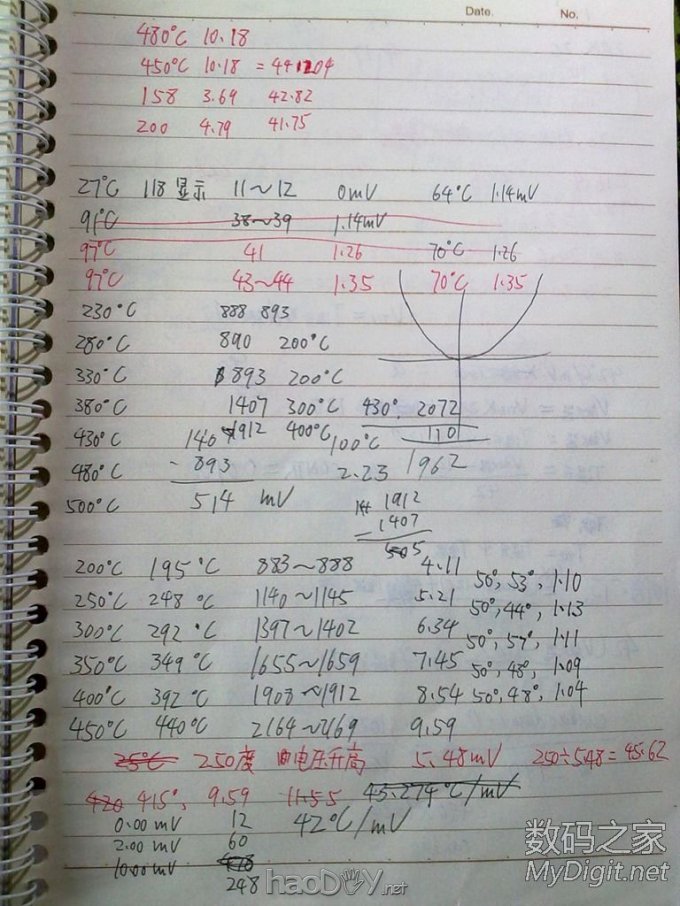 Date. No.
480°C 10.18
450°C 10.18 = 44.204
158 3.69 42.82
200 4.79 41.75
27°C 118 显示 11~12 0mV 64°C 1.14mV
91°C 38~39 1.14mV
97°C 41 1.26 70°C 1.26
97°C 43~44 1.35 70°C 1.35
230°C 888 893
280°C 890 200°C
330°C 893 200°C
380°C 1407 300°C 430° 2072
430°C 1407 1912 400°C 100°C 110
480°C - 893 2.23 1962
500°C 514 mV 1912
1407
505
200°C 195°C 883~888 4.11 50°, 53°, 1.10
250°C 248°C 1140~1145 5.21 50°, 44°, 1.13
300°C 292°C 1397~1402 6.34 50°, 57°, 1.11
350°C 349°C 1655~1659 7.45 50°, 48°, 1.09
400°C 392°C 1908~1912 8.54 50°, 48°, 1.04
450°C 440°C 2164~2169 9.59
25°C 250度 电压升高 5.48mV 250÷5.48=45.62
420 415°, 9.59 11.55 45.274°C/mV
0.00 mV 12 42°C/mV
2.00 mV 60
10.00 mV
248
数码之家
MyDigit.net
haoDIY.net